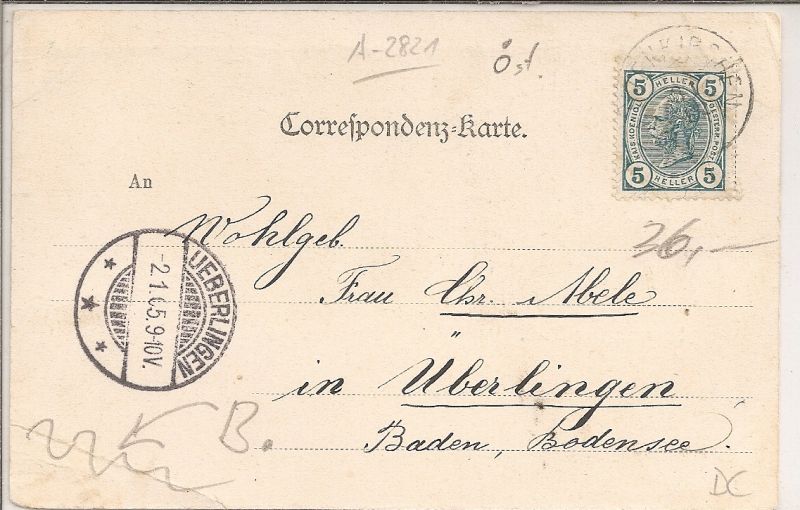 A-2821
Öst.
NKIRCHEN
5 HELLER 5
KAIS. KOENIGL. OESTERR. POST
5 HELLER 5
Correſpondenz-Karte.
An
Wohlgeb.
26,—
UEBERLINGEN
-2.1.05.9-10V.
Frau Chr. Abele
in Überlingen
B.
Baden, Bodensee.
DC